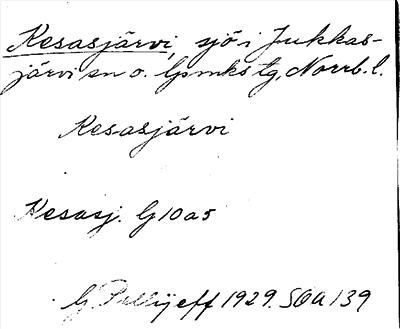 Kesasjärvi, sjö i Jukkas-
järvi sn o. lpmks tg, Norrb. l.
Kesasjärvi
Kesasj. G10a5
G. Pellijeff 1929. SOA 139